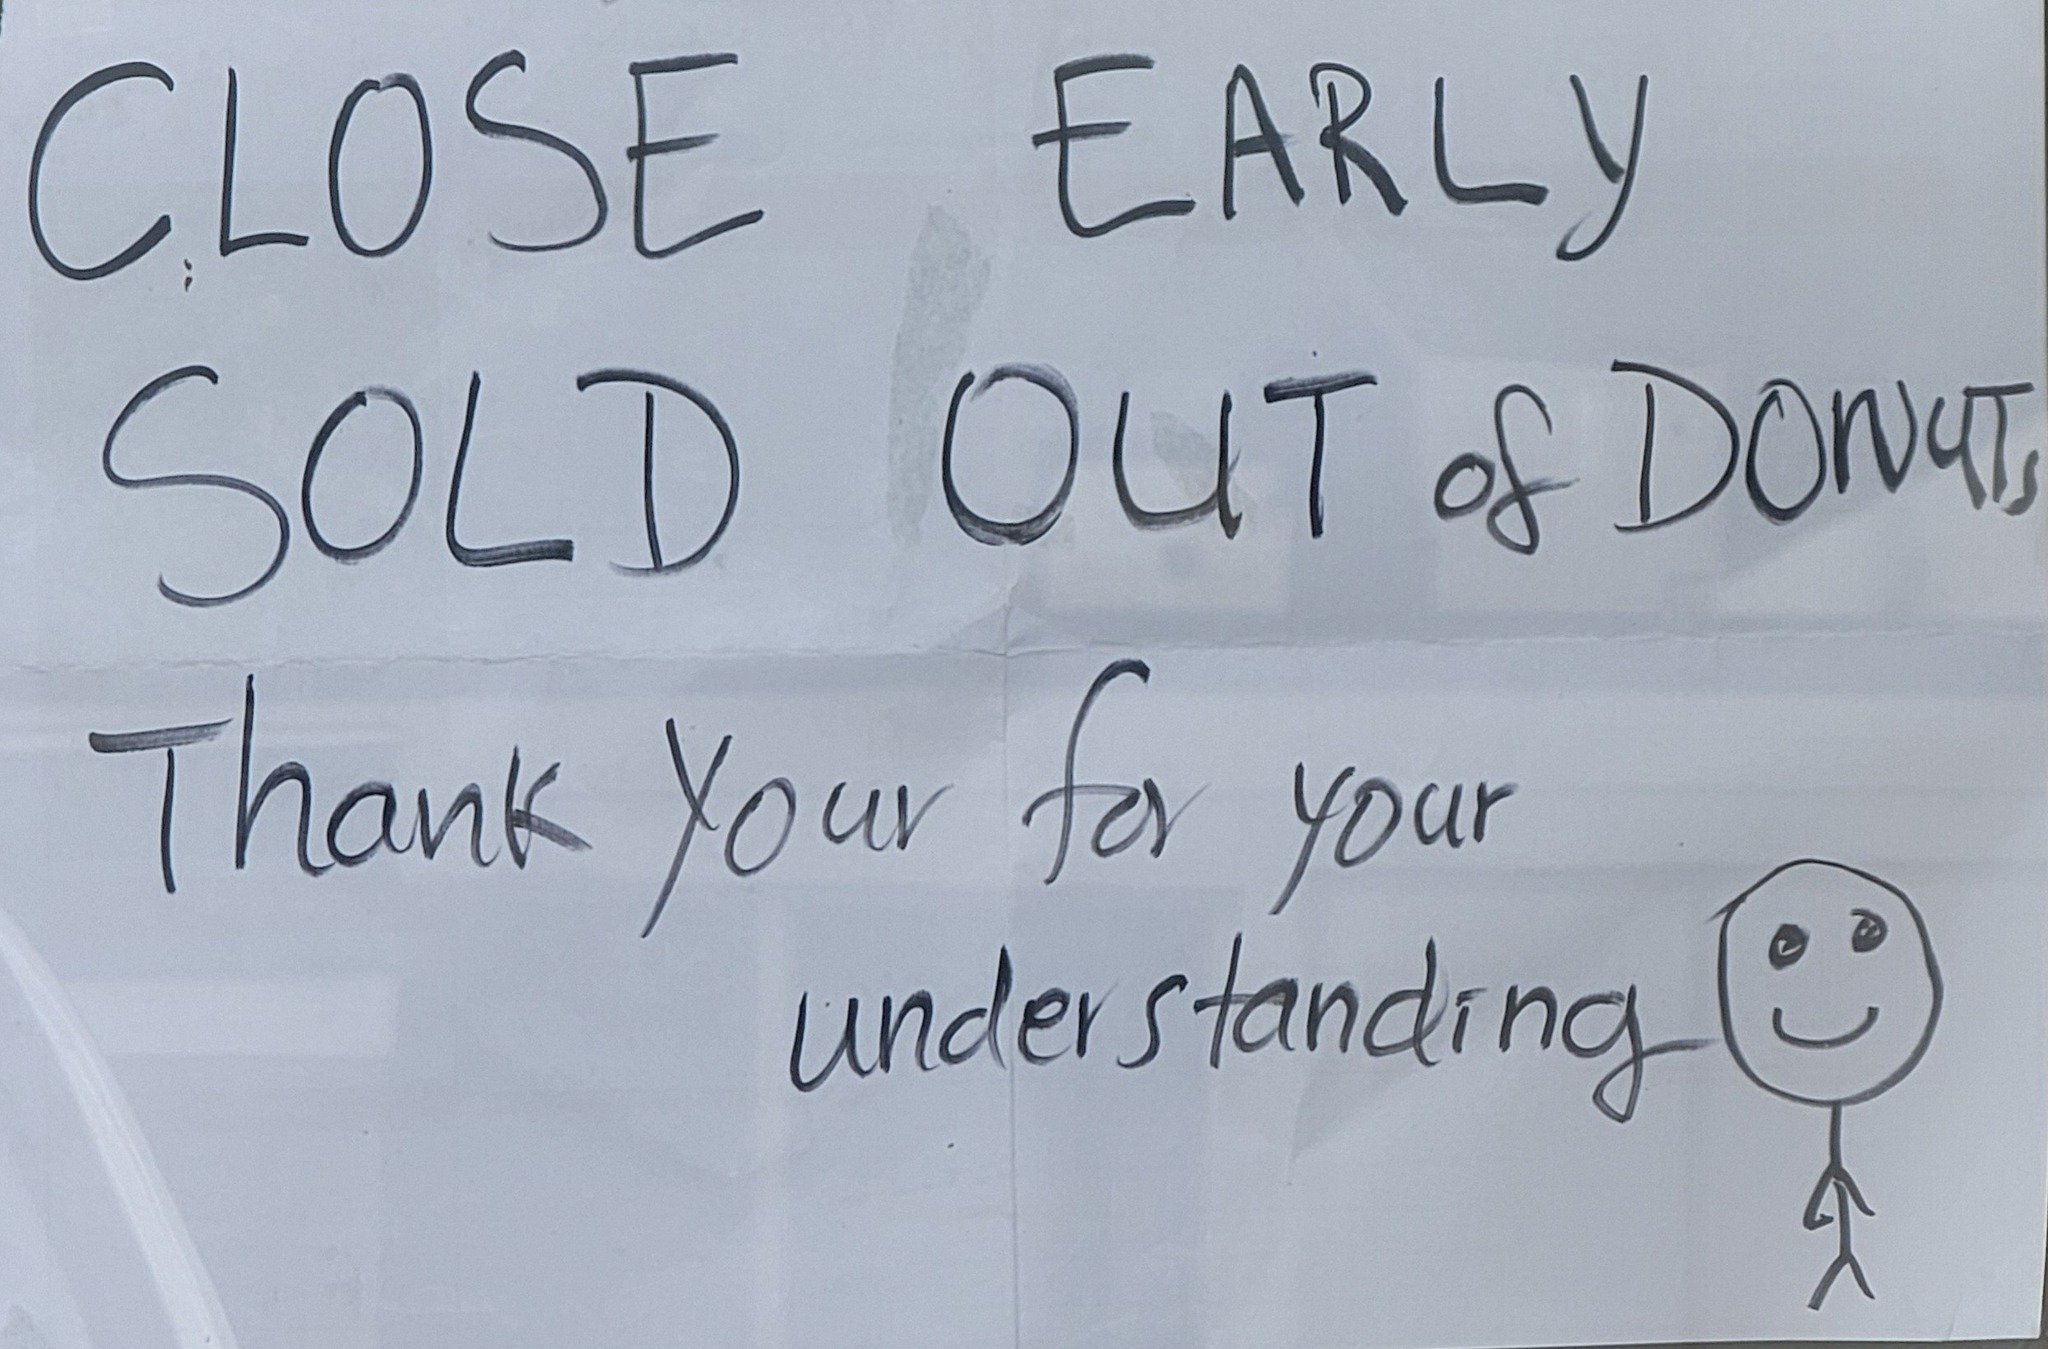 CLOSE EARLY
SOLD OUT of DONUTs
Thank Your for your
understanding